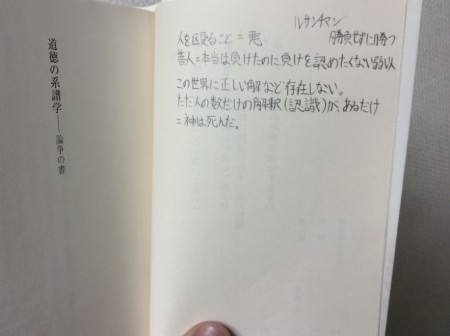 道徳の系譜学――論争の書
ルサンチマン
人を殴ること=悪 勝負せずに勝つ
善人=本当は負けたのに負けを認めたくない弱い人
この世界に正しい解など存在しない。
ただ人の数だけの解釈(認識)が、あるだけ
=神は死んだ。